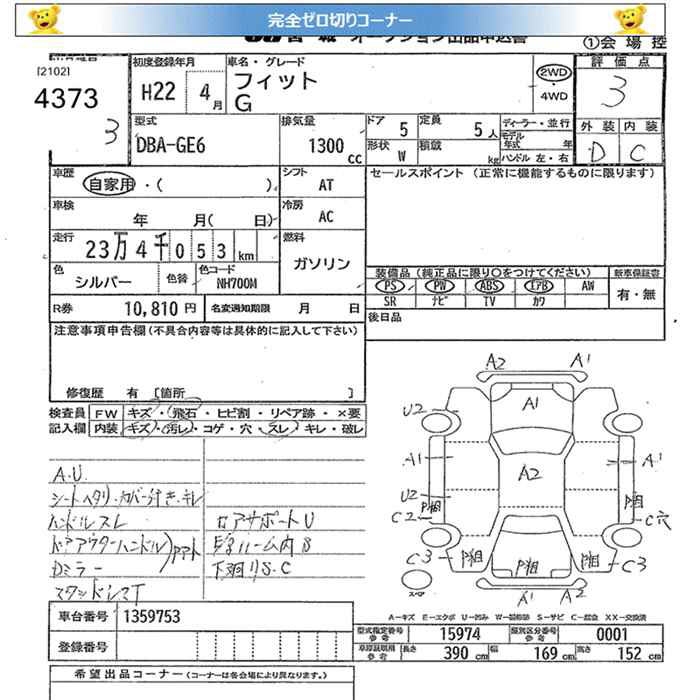 完全ゼロ切りコーナー
オークション出品申込書
①会場控
[2102]
4373
3
初度登録年月
H22 4月
車名・グレード
フィット
G
2WD
・4WD
評価点
3
外装 内装
D C
型式
DBA-GE6
排気量
1300cc
ドア 5
定員 5人
形状 W
積載 kg
ディーラー・並行
モデル年式 年
ハンドル 左・右
車歴
自家用・( )
シフト AT
セールスポイント (正常に機能するものに限ります)
車検
年 月( 日)
冷房 AC
走行
23万4千053km
燃料
ガソリン
色 シルバー
色替
色コード NH700M
装備品(純正品に限り○をつけてください)
PS PW ABS エアB AW
SR ナビ TV カワ
新車保証書
有・無
R券 10,810円
名変通知期限 月 日
後日品
注意事項申告欄(不具合内容等は具体的に記入して下さい)
修復歴 有 [箇所 ]
検査員記入欄
FW キズ・飛石・ヒビ割・リペア跡・×要
内装 キズ・汚レ・コゲ・穴・スレ・キレ・破レ
A.U.
シートヘタリ・カバー付き・キレ
ハンドルスレ
ドアアウターハンドル
Dミラー
スタッドレスT
ロアサポートU
下廻りS.C
A2 A1
A1
U2
A1 A2 A1
U2 P粗 P粗
C2 C穴
C3 P粗 P粗 P粗 C3
スペア
A1 A2
A-キズ E-エクボ U-凹ミ W-補修跡 S-サビ C-腐食 XX-交換済
車台番号 1359753
登録番号
型式指定番号 参考 15974
類別区分番号 参考 0001
車庫証明用 参考 長さ 390cm 幅 169cm 高さ 152cm
希望出品コーナー(コーナーは各会場により異なります。)